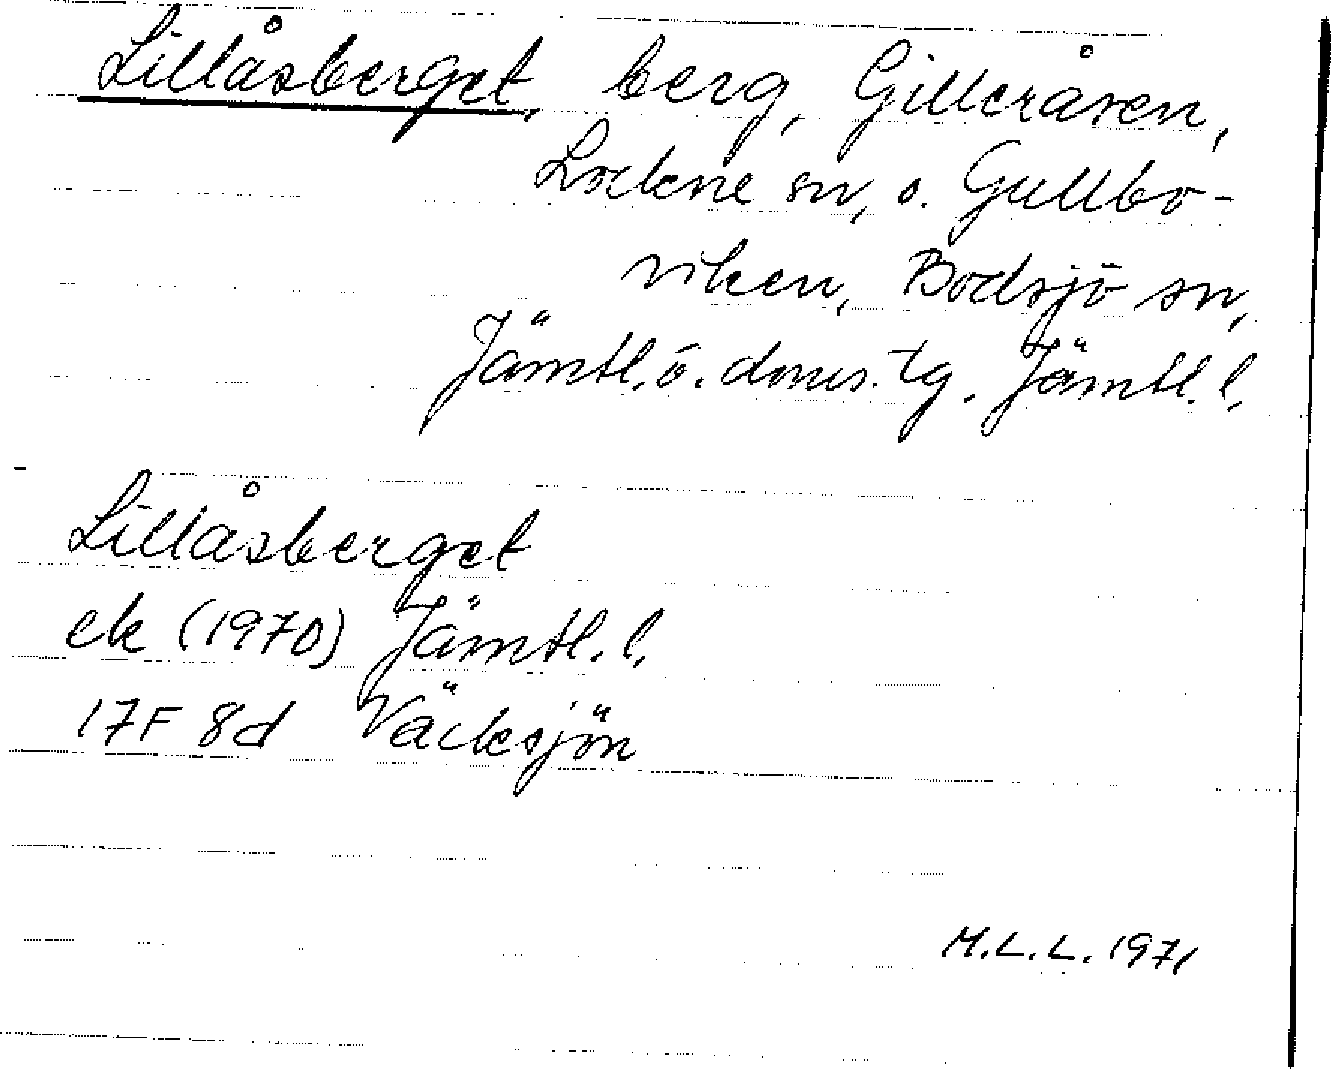 Lillåsberget, berg, Gilleråsen,
Lockne sn, o. Gullbo-
viken, Bodsjö sn,
Jämtl. ö. doms. tg. Jämtl. l.
Lillåsberget
ek (1970) Jämtl. l.
17F 8d Väcksjön
M.L.L. 1971